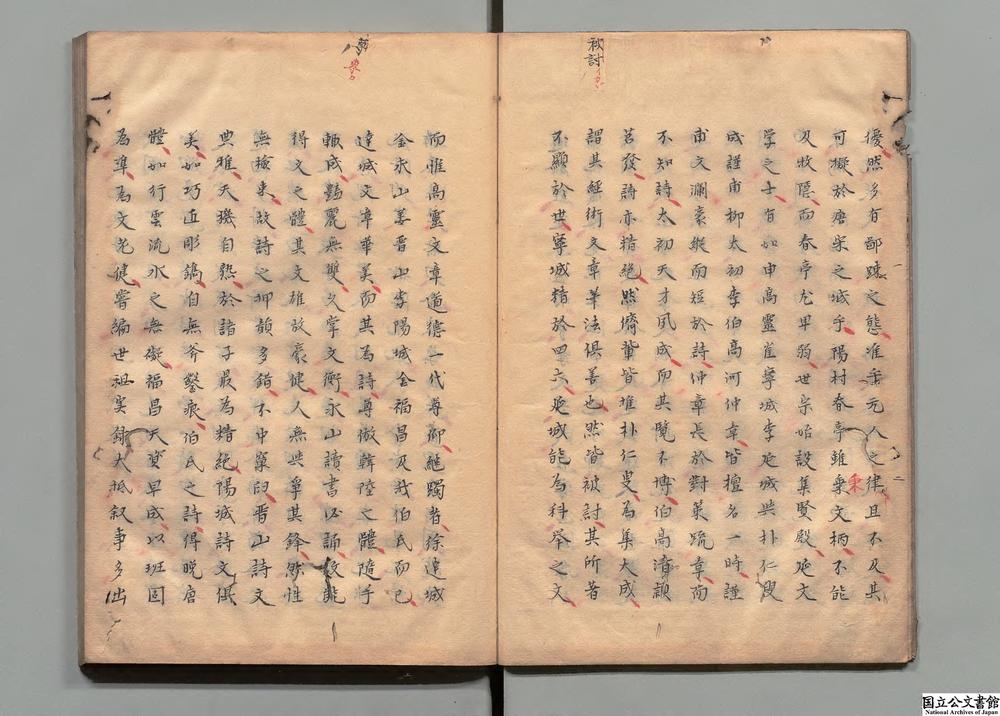 優然多有鄙疎之態准乎元人之律且不及其
可擬於唐宋之域乎陽村春亭雖秉文柄不能
及牧隱而春亭尤卑弱世宗始設集賢殿延文
學之士有如申高靈崔寧城李延城與朴仁叟
成謹甫柳太初李伯高河仲章皆擅名一時謹
甫文瀾豪縱而短於詩仲章長於對策疏章而
不知詩太初天才夙成而其覽不博伯高清穎
英發詩亦精絶然儕輩皆堆朴仁叟為集大成
謂其經術文章筆法俱善也然皆被討其所著
不顯於世寧城精於四六延城能為科舉之文
而惟高靈文章道德一代尊仰継躅者徐達城
金永山姜晋山李陽城金福昌及我伯氏而已
達城文章華美而其為詩專倣韓陸之體隨手
輒成艶麗無雙久掌文衡永山讀書必誦故能
得文之體其文雄放豪健人無與爭其鋒然性
無撿束故詩之押韻多錯不中窠臼晋山詩文
典雅天機自熟於諸子最為精絶陽城詩文俱
美如巧匠彫鐫自無斧鑿痕伯氏之詩得晚唐
體如行雲流水之無礙福昌天資早成以班固
為準為文老健嘗編世祖実録大抵叙事多出
国立公文書館
National Archives of Japan